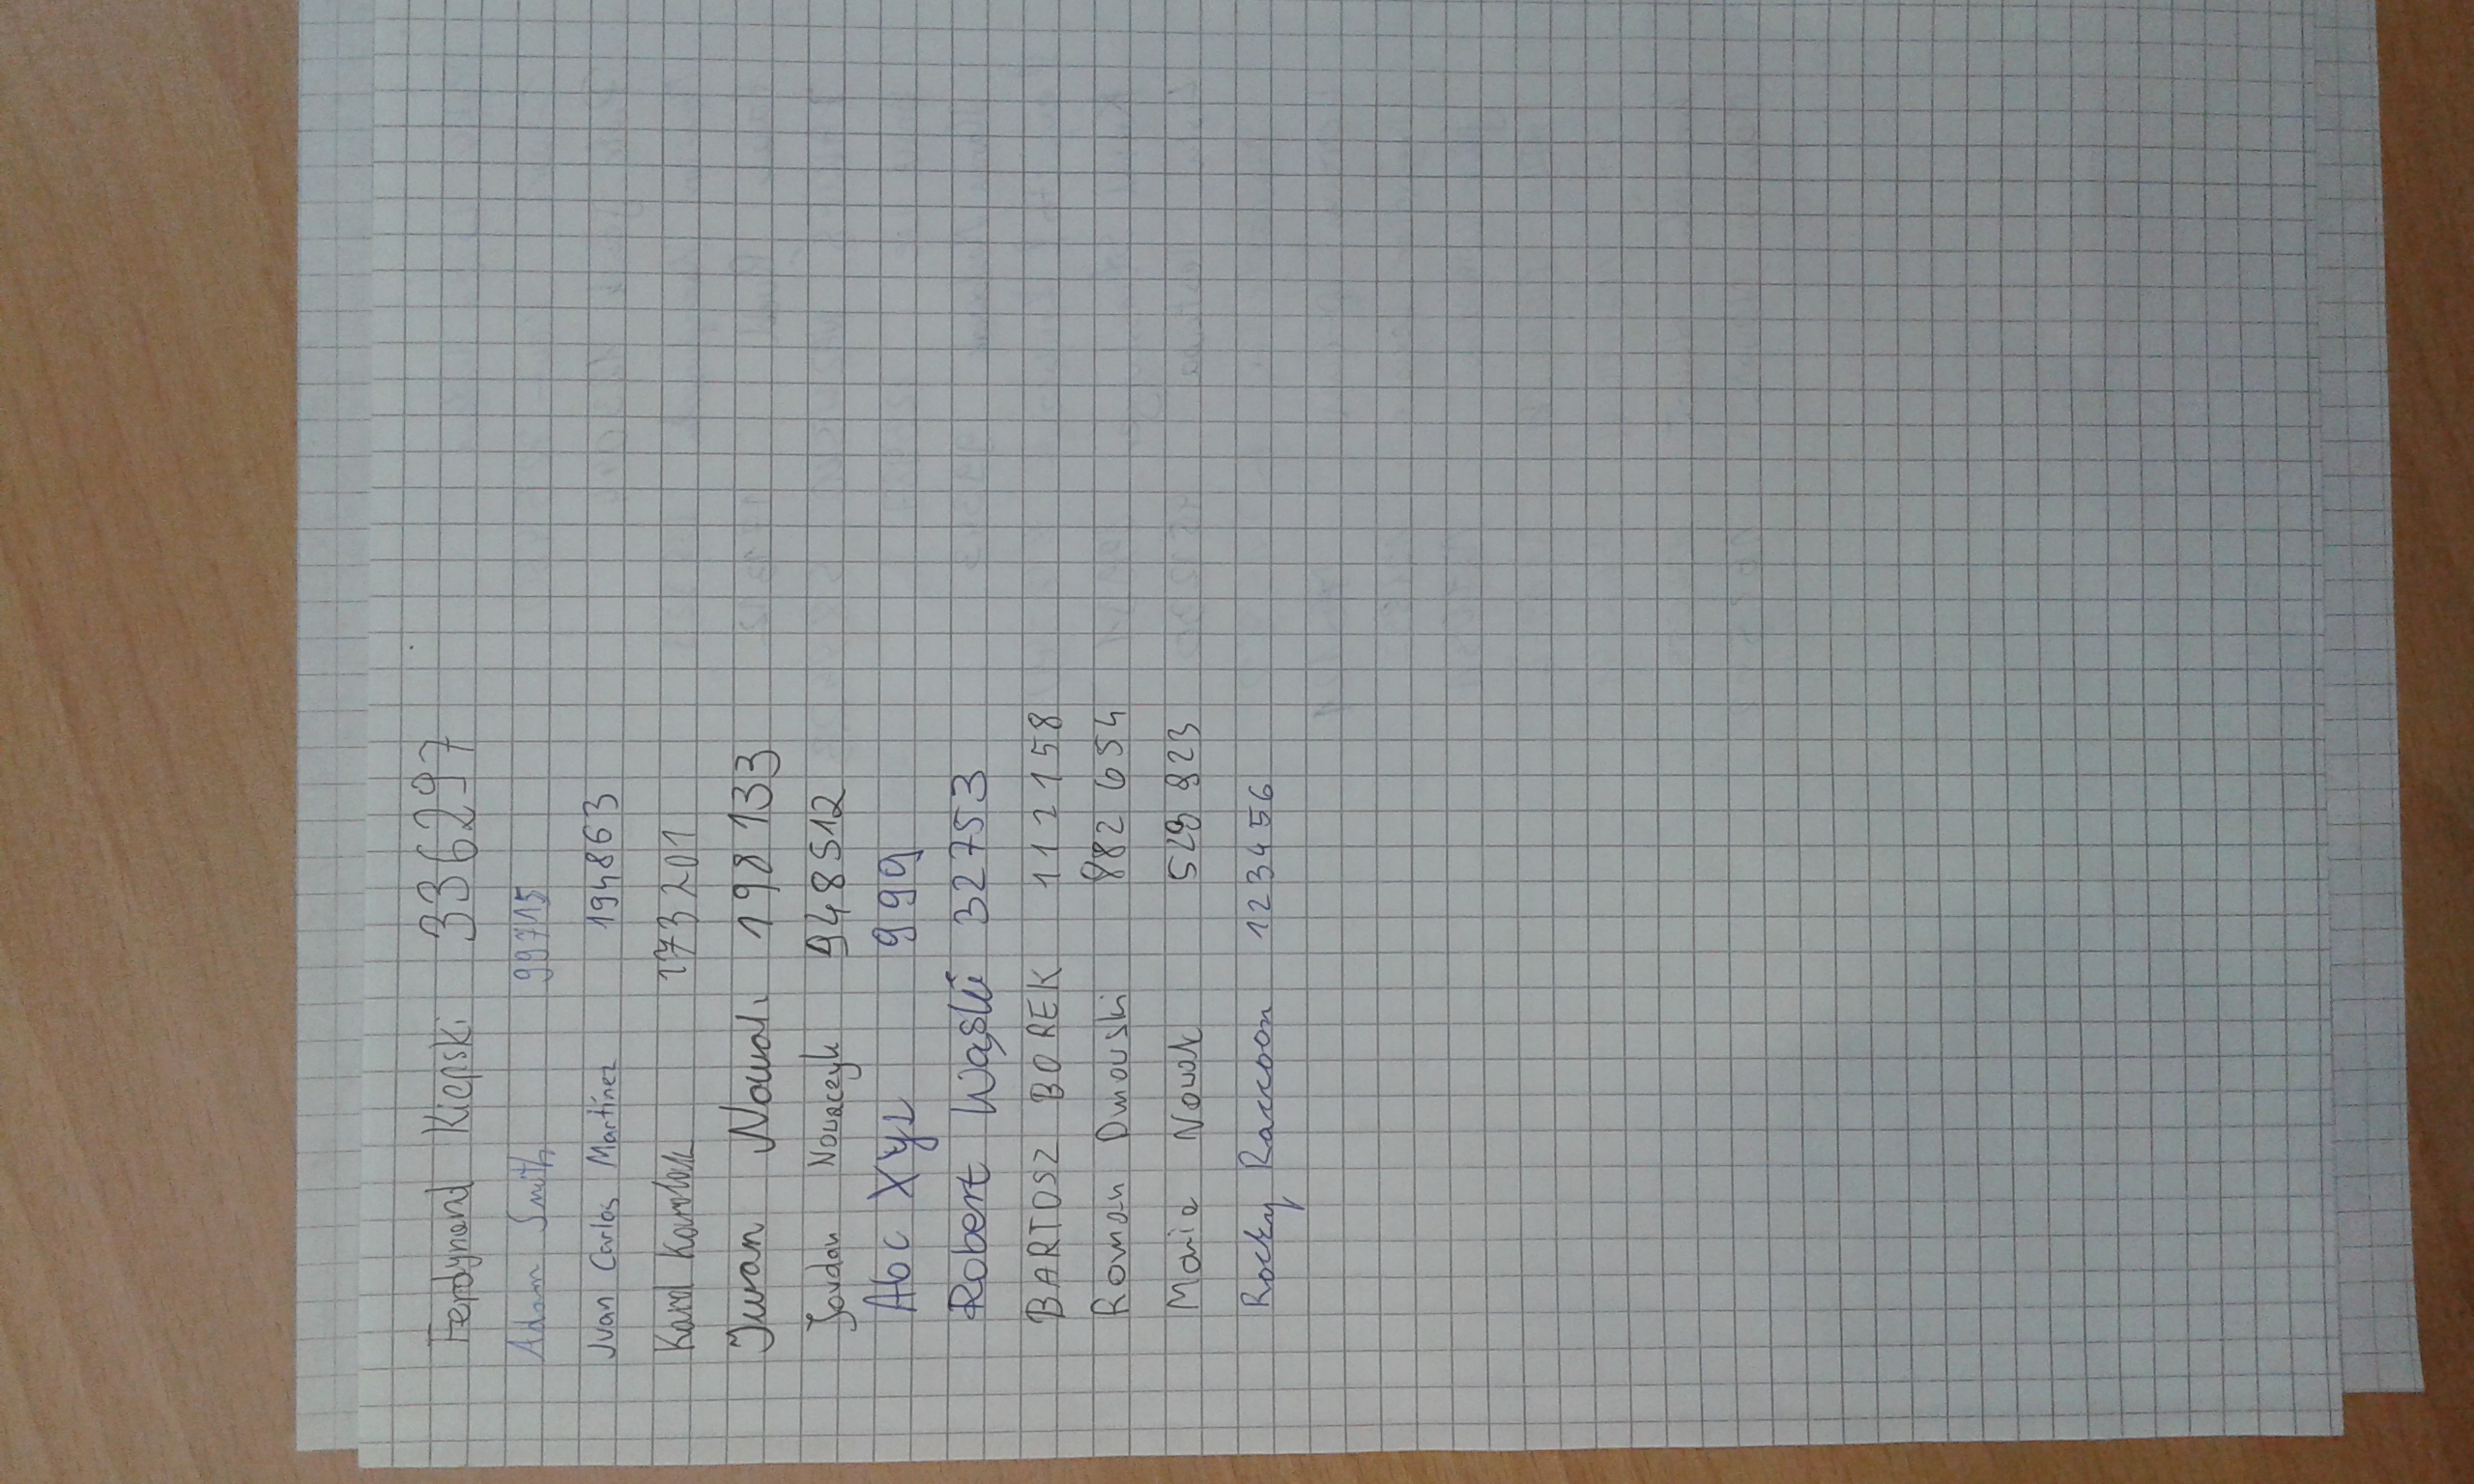 Ferdynand Kiepski 336297
Adam Smith 99715
Juan Carlos Martínez 194863
Karol Karolak 173201
Iwan Nowak 198133
Jordan Novaczyk 948512
Abc Xyz 999
Robert Wąski 32753
BARTOSZ BOREK 112158
Roman Dmowski 882 654
Maria Nowak 529 823
Rocky Raccoon 123456